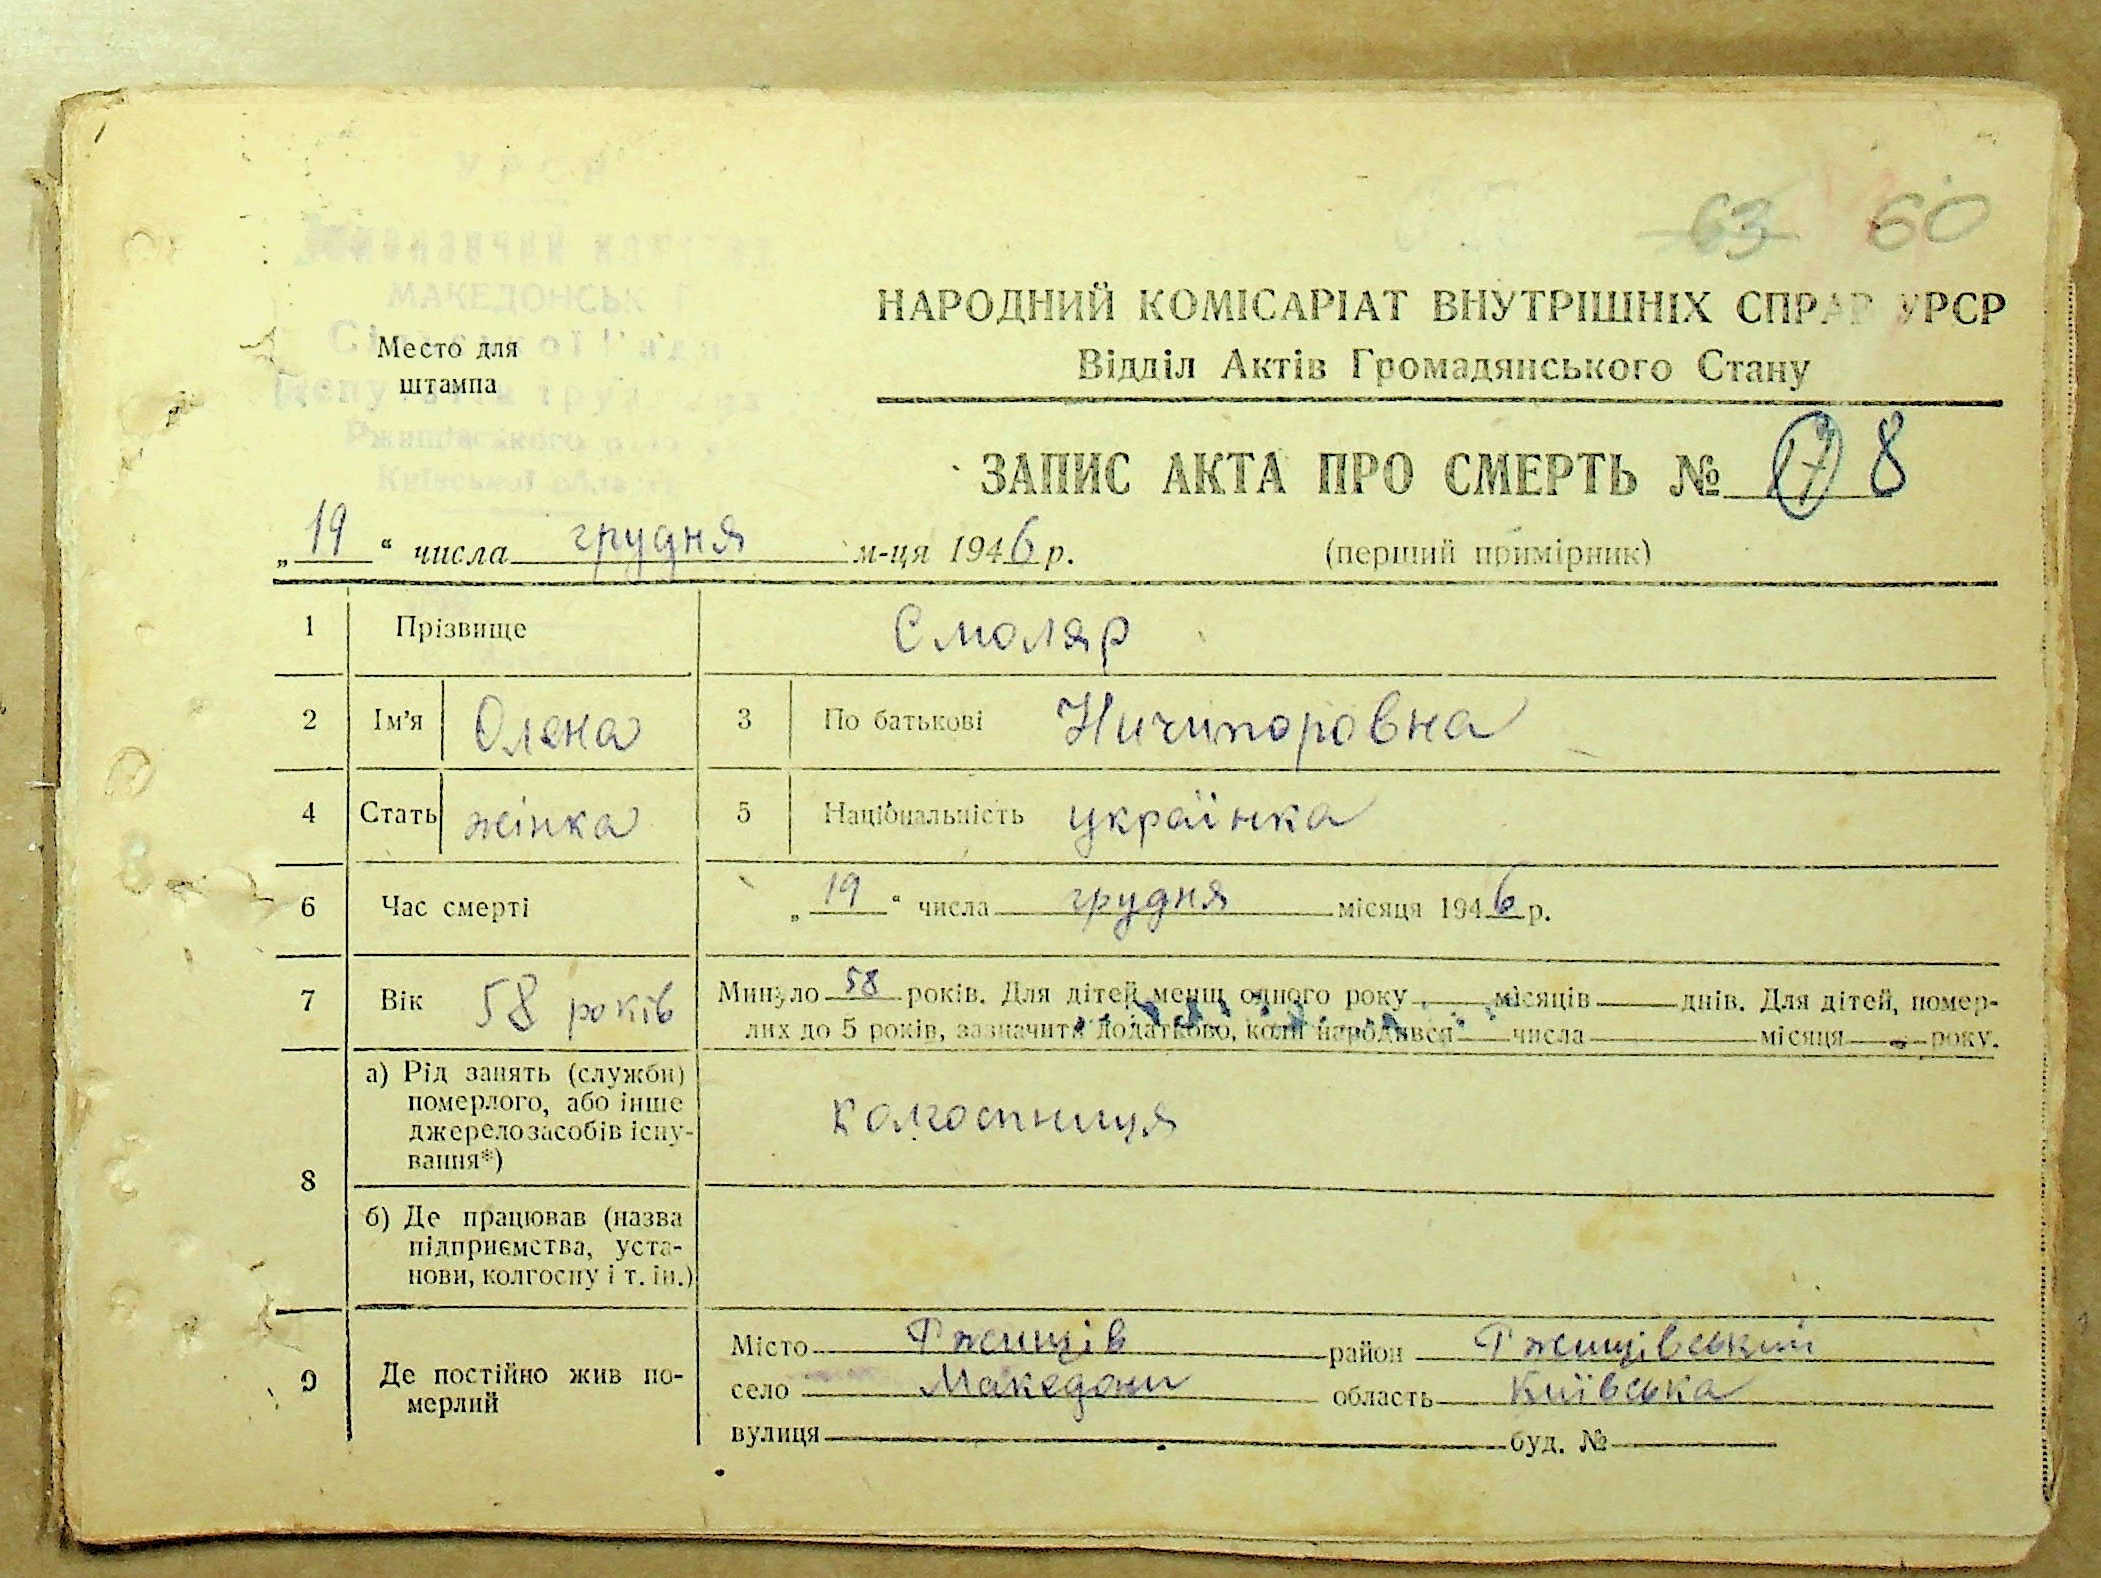 УРСР
Виконавчий комітет
МАКЕДОНСЬКОЇ
Сільської Ради
Депутатів трудящих
Ржищівського району
Київської області
Место для
штампа
63 60
НАРОДНИЙ КОМІСАРІАТ ВНУТРІШНІХ СПРАВ УРСР
Відділ Актів Громадянського Стану
ЗАПИС АКТА ПРО СМЕРТЬ № 17 8
„19“ числа грудня м-ця 1946 р. (перший примірник)
1 Прізвище Смоляр
2 Ім'я Олена 3 По батькові Ничипоровна
4 Стать жінка 5 Національність українка
6 Час смерті „19“ числа грудня місяця 1946 р.
7 Вік 58 років Минуло 58 років. Для дітей менш одного року місяців днів. Для дітей, помер-
лих до 5 років, зазначити додатково, коли народився числа місяця року.
8 а) Рід занять (служби)
померлого, або інше
джерело засобів існу-
вання*)
колгоспниця
б) Де працював (назва
підприємства, уста-
нови, колгоспу і т. ін.)
9 Де постійно жив по-
мерлий
Місто Ржищів район Ржищівський
село Македони область Київська
вулиця буд. №